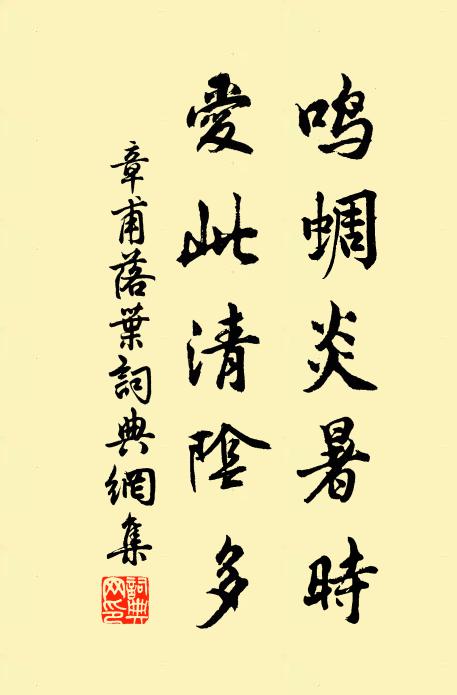 鸣蜩炎暑時
愛此清陰多
章甫落葉詞典網集
詞典网印